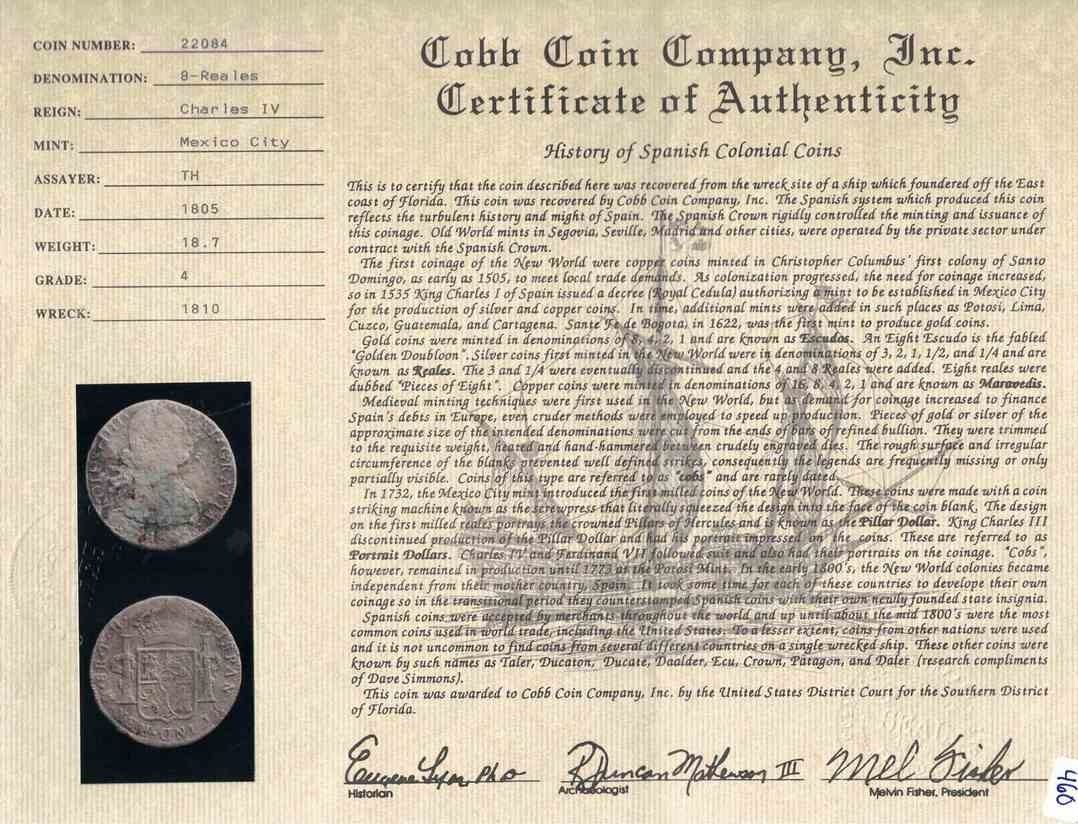 COIN NUMBER: 22084
DENOMINATION: 8-Reales
REIGN: Charles IV
MINT: Mexico City
ASSAYER: TH
DATE: 1805
WEIGHT: 18.7
GRADE: 4
WRECK: 1810
Cobb Coin Company, Inc.
Certificate of Authenticity
History of Spanish Colonial Coins
This is to certify that the coin described here was recovered from the wreck site of a ship which foundered off the East
coast of Florida. This coin was recovered by Cobb Coin Company, Inc. The Spanish system which produced this coin
reflects the turbulent history and might of Spain. The Spanish Crown rigidly controlled the minting and issuance of
this coinage. Old World mints in Segovia, Seville, Madrid and other cities, were operated by the private sector under
contract with the Spanish Crown.
The first coinage of the New World were copper coins minted in Christopher Columbus' first colony of Santo
Domingo, as early as 1505, to meet local trade demands. As colonization progressed, the need for coinage increased,
so in 1535 King Charles I of Spain issued a decree (Royal Cedula) authorizing a mint to be established in Mexico City
for the production of silver and copper coins. In time, additional mints were added in such places as Potosi, Lima,
Cuzco, Guatemala, and Cartagena. Sante Fe de Bogota, in 1622, was the first mint to produce gold coins.
Gold coins were minted in denominations of 8, 4, 2, 1 and are known as Escudos. An Eight Escudo is the fabled
"Golden Doubloon". Silver coins first minted in the New World were in denominations of 3, 2, 1, 1/2, and 1/4 and are
known as Reales. The 3 and 1/4 were eventually discontinued and the 4 and 8 Reales were added. Eight reales were
dubbed "Pieces of Eight". Copper coins were minted in denominations of 16, 8, 4, 2, 1 and are known as Maravedis.
Medieval minting techniques were first used in the New World, but as demand for coinage increased to finance
Spain's debts in Europe, even cruder methods were employed to speed up production. Pieces of gold or silver of the
approximate size of the intended denominations were cut from the ends of bars of refined bullion. They were trimmed
to the requisite weight, heated and hand-hammered between crudely engraved dies. The rough surface and irregular
circumference of the blanks prevented well defined strikes, consequently the legends are frequently missing or only
partially visible. Coins of this type are referred to as "cobs" and are rarely dated.
In 1732, the Mexico City mint introduced the first milled coins of the New World. These coins were made with a coin
striking machine known as the screwpress that literally squeezed the design into the face of the coin blank. The design
on the first milled reales portrays the crowned Pillars of Hercules and is known as the Pillar Dollar. King Charles III
discontinued production of the Pillar Dollar and had his portrait impressed on the coins. These are referred to as
Portrait Dollars. Charles IV and Ferdinand VII followed suit and also had their portraits on the coinage. "Cobs",
however, remained in production until 1773 at the Potosi Mint. In the early 1800's, the New World colonies became
independent from their mother country, Spain. It took some time for each of these countries to develope their own
coinage so in the transitional period they counterstamped Spanish coins with their own newly founded state insignia.
Spanish coins were accepted by merchants throughout the world and up until about the mid 1800's were the most
common coins used in world trade, including the United States. To a lesser extent, coins from other nations were used
and it is not uncommon to find coins from several different countries on a single wrecked ship. These other coins were
known by such names as Taler, Ducaton, Ducate, Daalder, Ecu, Crown, Patagon, and Daler (research compliments
of Dave Simmons).
This coin was awarded to Cobb Coin Company, Inc. by the United States District Court for the Southern District
of Florida.
Eugene Lyon, PhD
Historian
R Duncan Mathewson III
Archaeologist
Mel Fisher
Melvin Fisher, President
460